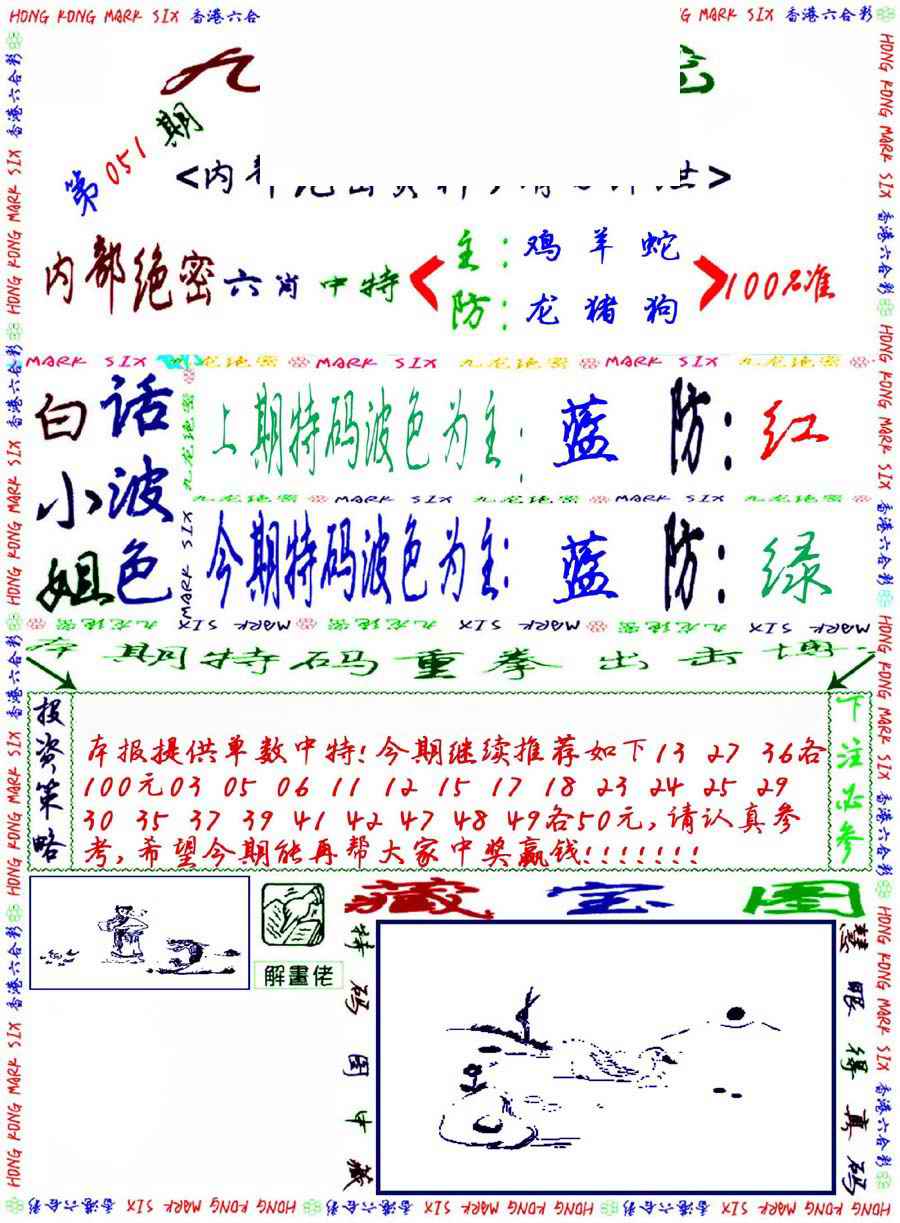 HONG KONG MARK SIX 香港六合彩
九
第051期
内部绝密六肖中特
主：鸡 羊 蛇
防：龙 猪 狗
100%准
MARK SIX 九龙绝密 MARK SIX 九龙绝密 MARK SIX 九龙绝密
白话
小波
姐色
上期特码波色为主：蓝 防：红
九龙绝密 MARK SIX 九龙绝密 MARK SIX 九龙绝密
今期特码波色为主：蓝 防：绿
九龙绝密 MARK SIX 九龙绝密 MARK SIX 九龙绝密 MARK SIX
本期特码重拳出击
投资策略
本报提供单数中特!今期继续推荐如下13 27 36各
100元03 05 06 11 12 15 17 18 23 24 25 29
30 35 37 39 41 42 47 48 49各50元,请认真参
考,希望今期能再帮大家中奖赢钱!!!!!!!
下注必参
解畫佬
藏宝图
特码图中藏
慧眼得真码
HONG KONG MARK SIX 香港六合彩